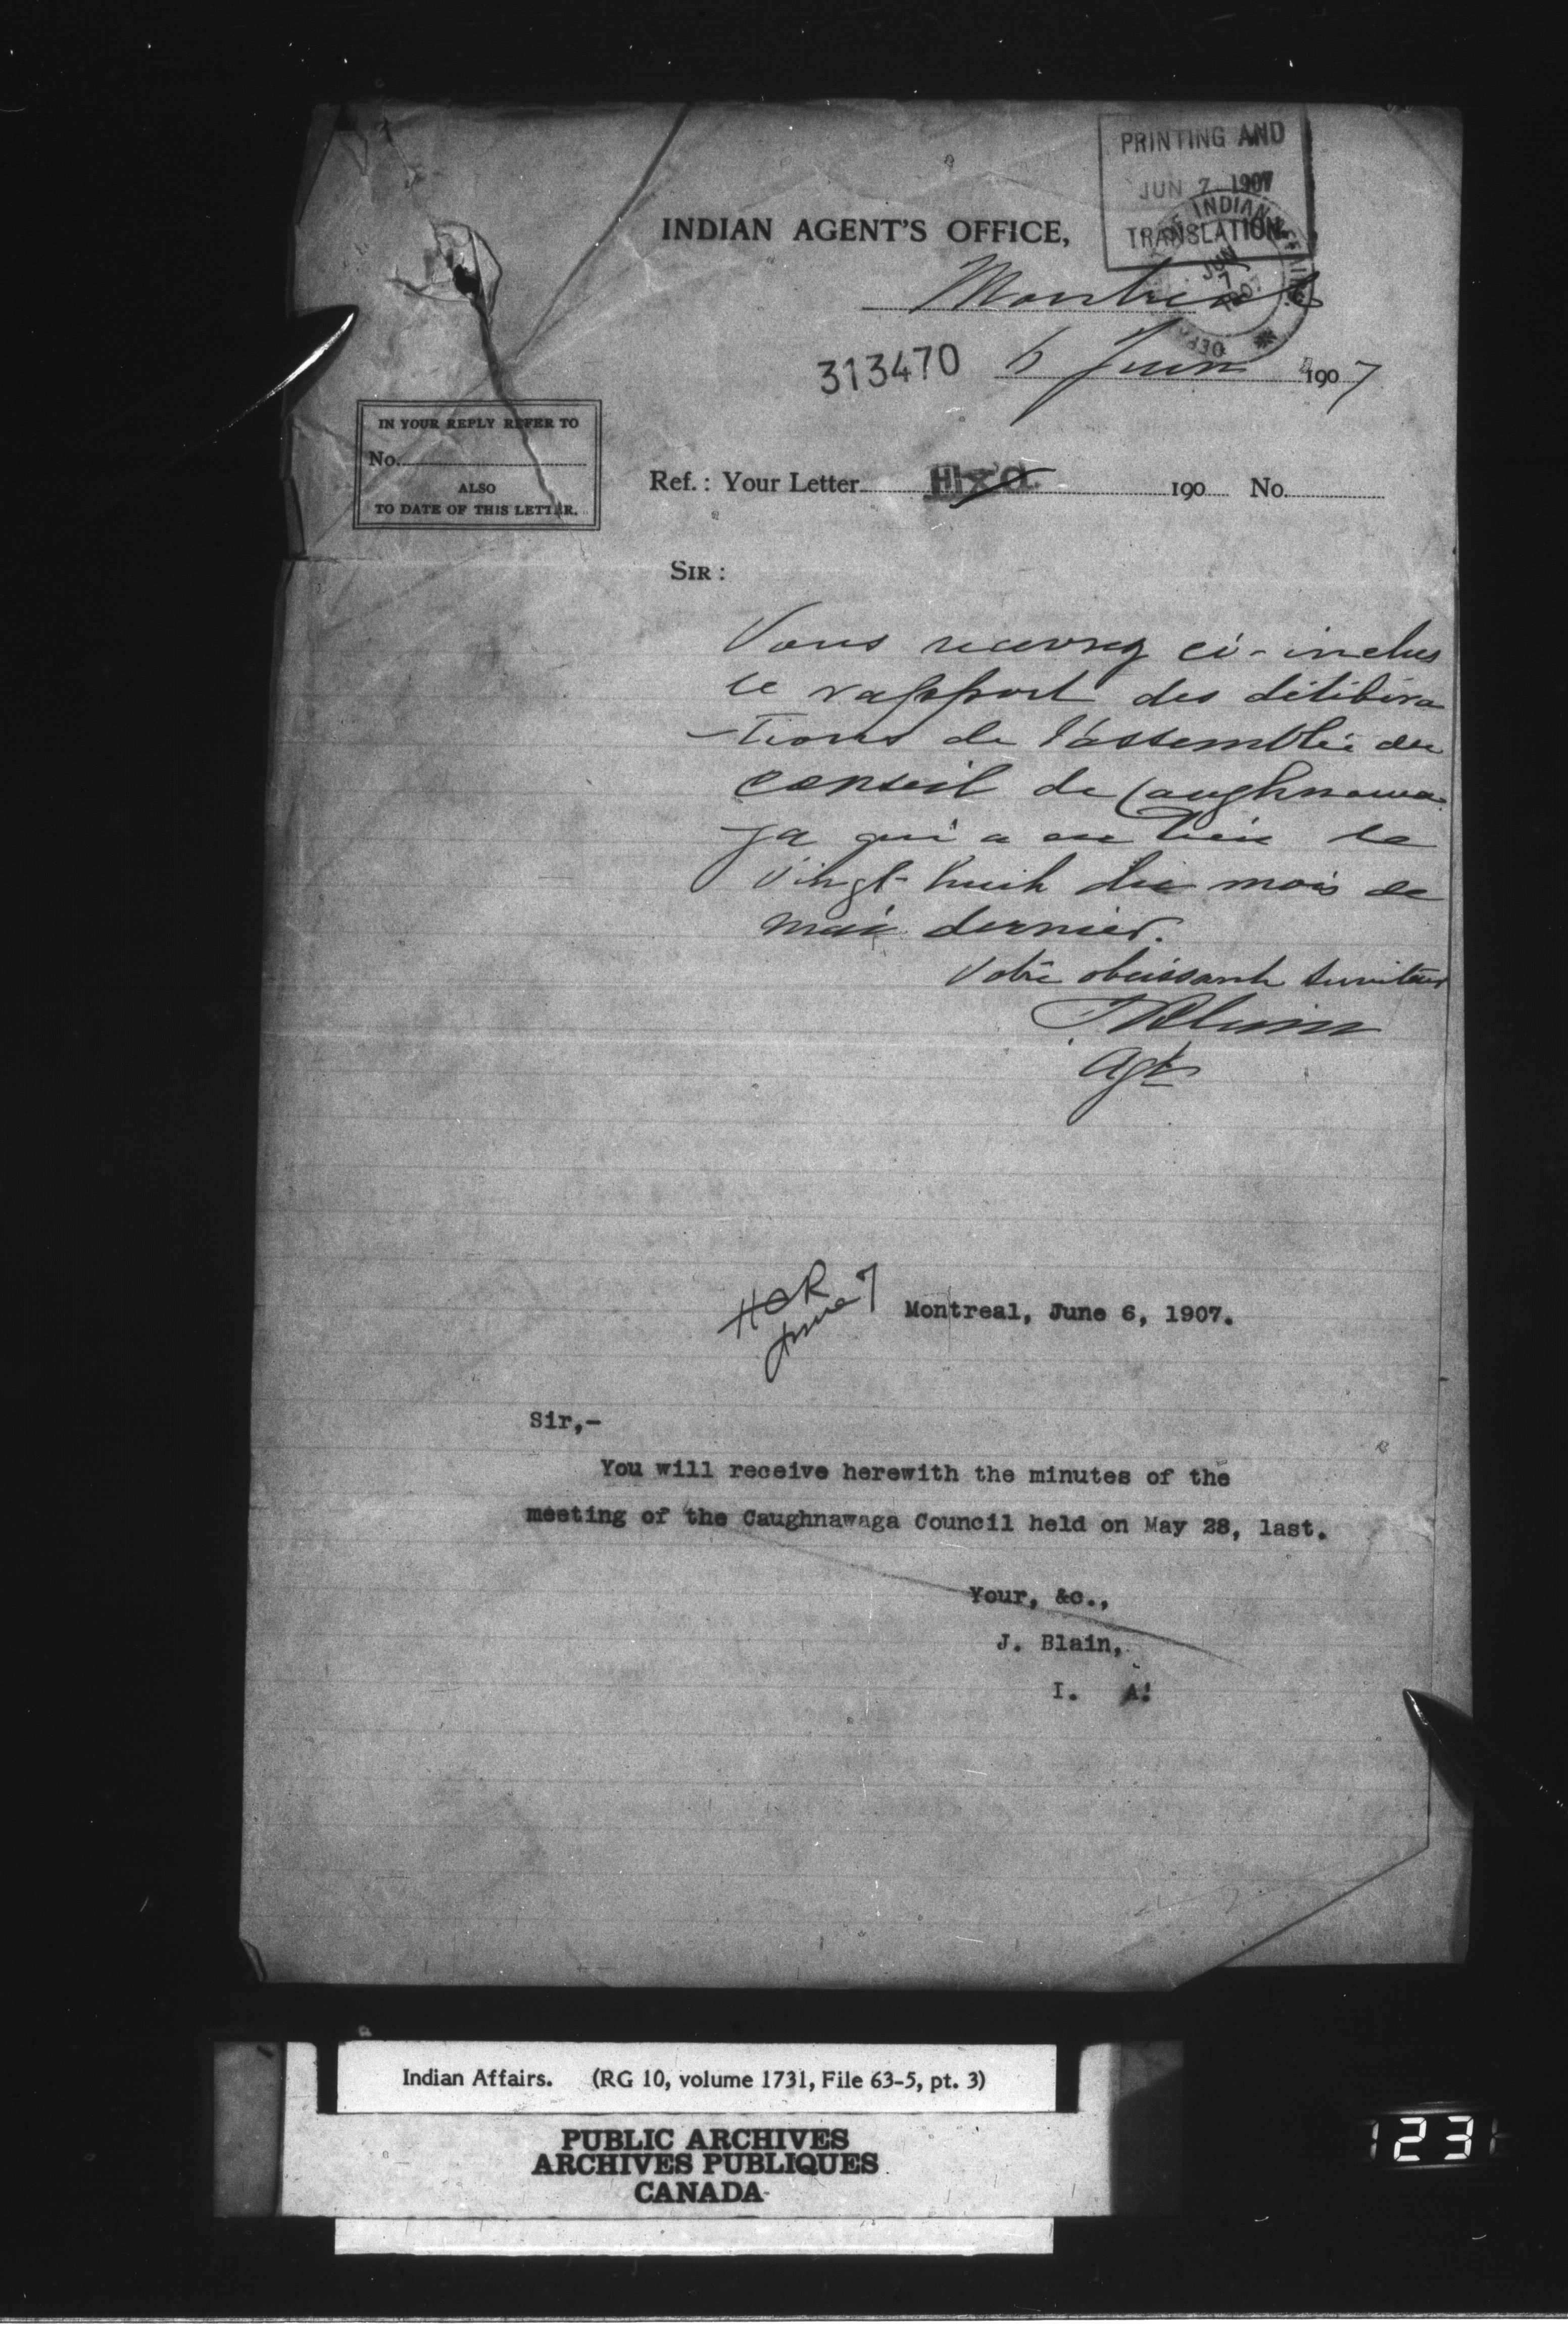 PRINTING AND
JUN 7 1907
TRANSLATION
INDIAN AGENT'S OFFICE,
Montreal
313470 6 Juin 1907
IN YOUR REPLY REFER TO
No.
ALSO
TO DATE OF THIS LETTER.
Ref.: Your Letter 190 No.
SIR:
Vous recevrez ci-inclus
le rapport des délibéra
-tions de l'assemblée du
conseil de Caughnawa
ga qui a eu lieu le
vingt-huit du mois de
mai dernier.
Votre obéissant serviteur
J Blain
Agt
HCR
June 7
Montreal, June 6, 1907.
Sir,-
You will receive herewith the minutes of the
meeting of the Caughnawaga Council held on May 28, last.
Your, &c.,
J. Blain,
I. A.
Indian Affairs. (RG 10, volume 1731, File 63-5, pt. 3)
PUBLIC ARCHIVES
ARCHIVES PUBLIQUES
CANADA
123